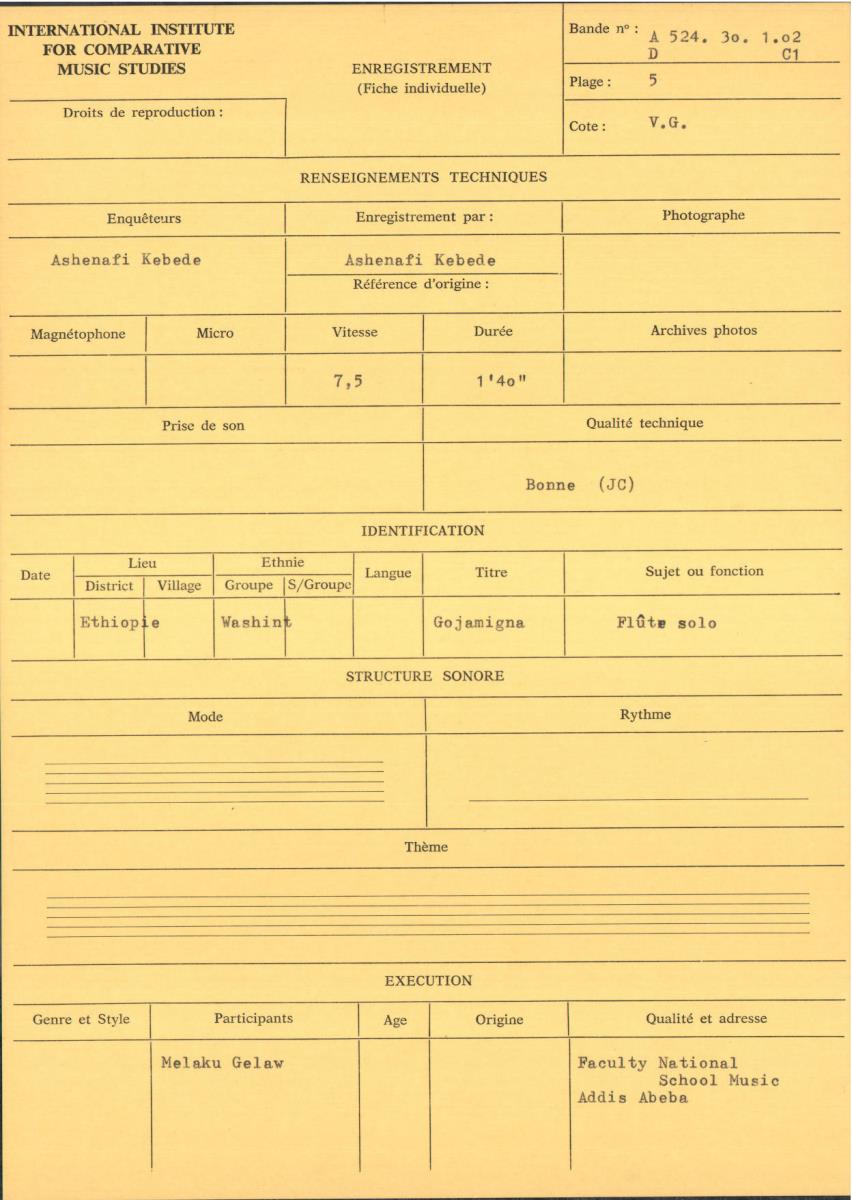 INTERNATIONAL INSTITUTE
FOR COMPARATIVE
MUSIC STUDIES
Droits de reproduction :
ENREGISTREMENT
(Fiche individuelle)
Bande nº : A 524. 3o. 1.o2
D C1
Plage : 5
Cote : V.G.
RENSEIGNEMENTS TECHNIQUES
Enquêteurs Enregistrement par : Photographe
Ashenafi Kebede Ashenafi Kebede
Référence d'origine :
Magnétophone Micro Vitesse Durée Archives photos
7,5 1'4o"
Prise de son Qualité technique
Bonne (JC)
IDENTIFICATION
Date Lieu Ethnie Langue Titre Sujet ou fonction
District Village Groupe S/Groupe
Ethiopie Washint Gojamigna Flûte solo
STRUCTURE SONORE
Mode Rythme
Thème
EXECUTION
Genre et Style Participants Age Origine Qualité et adresse
Melaku Gelaw Faculty National
School Music
Addis Abeba